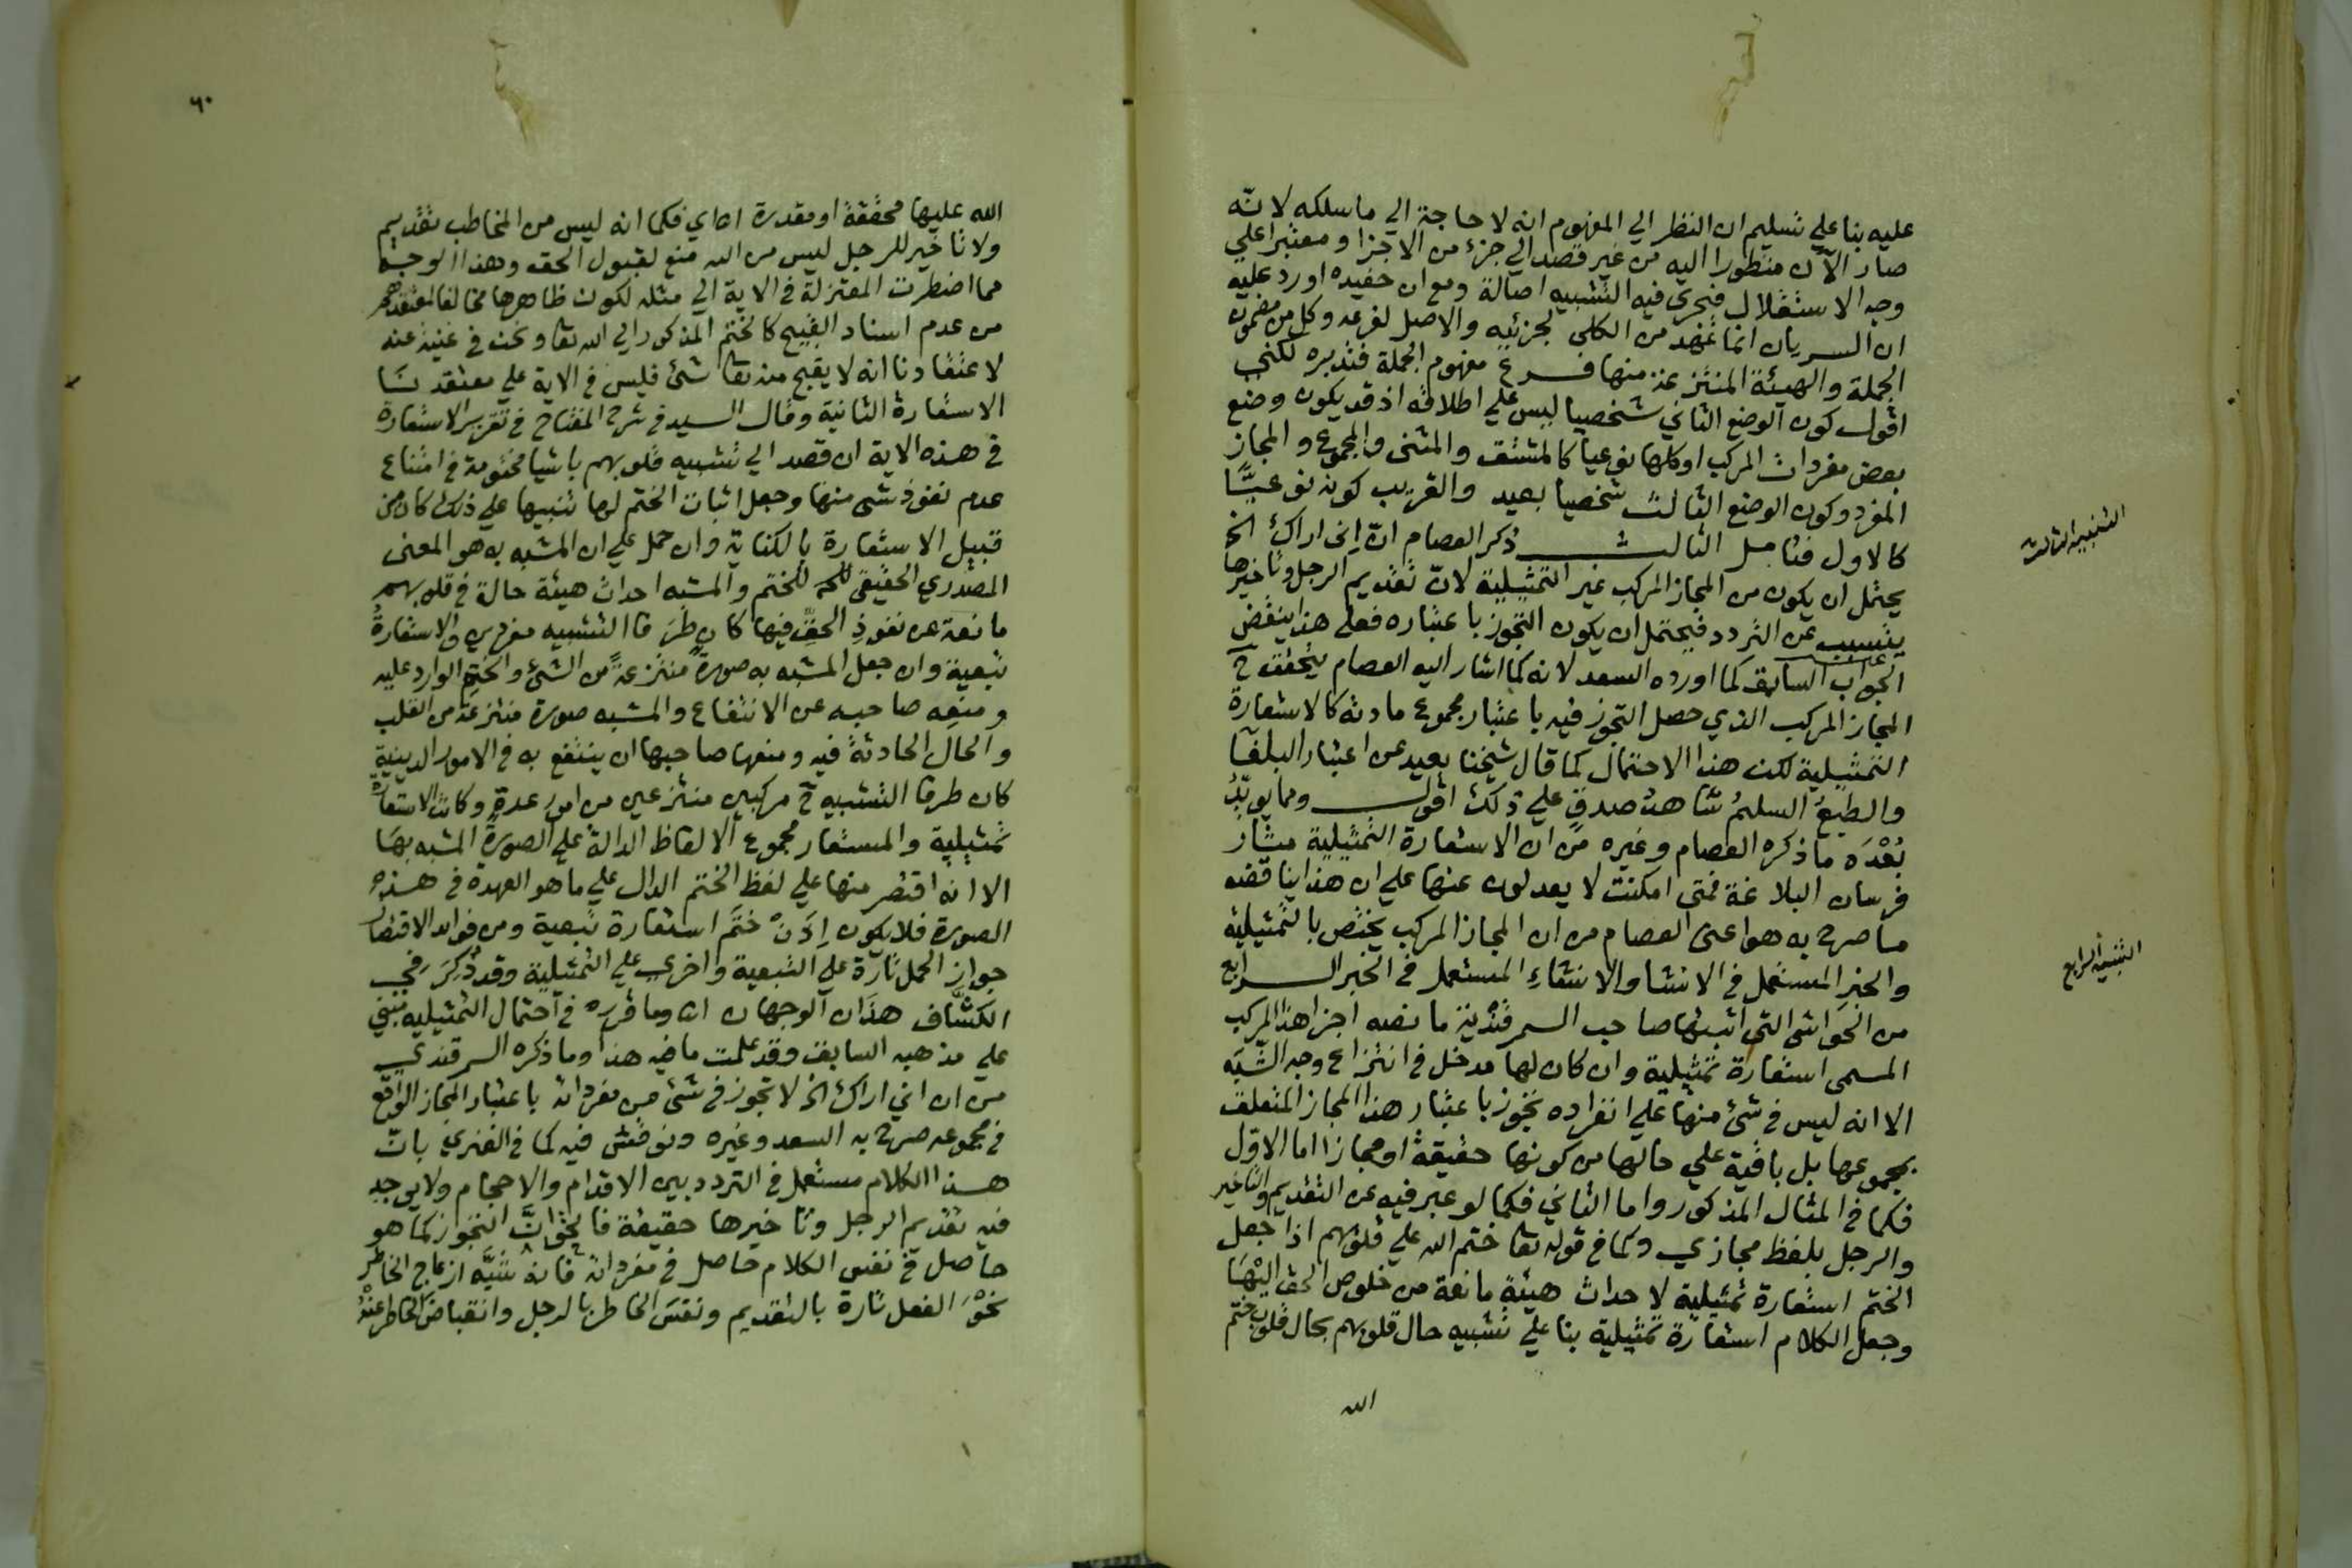 عليه بنا علي تسليم ان النظر الي المفهوم انه لا حاجة الي ما سلكه لانه
صار الآن منظورا اليه من غير قصد الي جزئ من الاجزا ومعتبرا علي
وجه الاستقلال فيجري فيه التشبيه اصالة ومع ان حفيده اورد عليه
ان السريان انما عهد من الكلي لجزئيه والاصل لفرعه وكل من مضمون
الجملة والهيئة المنتزعة منها فرع مفهوم الجملة فتدبره لكني
اقول كون الوضع الثاني شخصيا ليس علي اطلاقه اذ قد يكون وضع
بعض مفردات المركب او كلها نوعيا كالمشتق والمثنى والمجموع والمجاز
المفرد وكون الوضع الثالث شخصيا بعيد والقريب كونه نوعيًّا
كالاول فتامل الثالث ذكر العصام انّ إني اراك الخ
يحتمل ان يكون من المجاز المركب غير التمثيلية لانّ تقديم الرجل وتاخيرها
يتسبب عن التردد فيحتمل ان يكون التجوز باعتباره فعلى هذا ينقض
الجواب السابق كما اورده السعد لانه كما اشار اليه العصام يتحقق في
المجاز المركب الذي حصل التجوز فيه باعتبار مجموع مادته كالاستعارة
التمثيلية لكن هذا الاحتمال كما قال شيخنا بعيد عن اعتبار البلغآ
والطبع السليم شاهد صدقٍ علي ذلك اقول ومما يويّدُ
بُعْدَه ما ذكره العصام وغيره من ان الاستعارة التمثيلية مثار
فرسان البلاغة فمتى امكنت لا يعدلون عنها علي ان هذا يناقضه
ما صرح به هو اعنى العصام من ان المجاز المركب يختص بالتمثيلية
والخبر المستعمل في الانشا والانشاءِ المستعمل في الخبر الرابع
من الحواشي التي اثبتها صاحب السمرقندية ما نصه اجزا هذا المركب
المسمى استعارة تمثيلية وان كان لها مدخل في انتزاع وجه الشبه
الا انه ليس في شئ منها علي انفراده تجوز باعتبار هذا المجاز المتعلق
بمجموعها بل باقية علي حالها من كونها حقيقة او مجازا اما الاوّل
فكما في المثال المذكور واما الثاني فكما لو عبر فيه عن التقديم والتاخير
والرجل بلفظ مجازي وكما في قوله تعا ختم الله علي قلوبهم اذا جعل
الختم استعارة تمثيلية لاحداث هيئة مانعة من خلوص الحق اليْهَا
وجعل الكلام استعارة تمثيلية بنا علي تشبيه حال قلوبهم بحال قلوب ختم
الله
التنبيه الثالث
التنبيه الرابع
٦٠
الله عليها محققة او مقدرة اه اي فكما انه ليس من المخاطب تقديم
ولا تاخير للرجل ليس من الله منع لقبول الحق وهذا الوجه
مما اضطرت المعتزلة في الاية الي مثله لكون ظاهرها مخالفا لمعتقدهم
من عدم اسناد القبيح كالختم المذكور الي الله تعا ونحن في غنية عنه
لاعتقادنا انه لا يقبح منه تعا شئ فليس في الاية علي معتقدنا
الاستعارة الثانية وقال السيد في شرح المفتاح في تقرير الاستعارة
في هذه الاية ان قصد الي تشبيه قلوبهم باشيا مختومة في امتناع
عدم نفوذ شى منها وجعل اثبات الختم لها تنبيها علي ذلك كان من
قبيل الاستعارة بالكناية وان حمل علي ان المشبه به هو المعنى
المصدري الحقيقي للختم والمشبه احداث هيئة حالة في قلوبهم
مانعة عن نفوذِ الحقِّ فيها كان طرفا التشبيه مفردين والاستعارةُ
تبعية وان جعل المشبه به صورةً منتزعةً من الشئ والختم الوارد عليه
ومنعِه صاحبه عن الانتفاع والمشبه صورة منتزعة من القلب
والحال الحادثة فيه ومنعها صاحبها ان ينتفع به في الامور الدينية
كان طرفا التشبيه مركبين منتزعين من امور عدة وكانت الاستعارة
تمثيلية والمستعار مجموع الالفاظ الدالة علي الصورة المشبه بها
الا انه اقتصر منها علي لفظ الختم الدال علي ما هو العهدة في هذه
الصورة فلا يكون إذَنْ ختَم استعارة تبعية ومن فوائد الاقتصار
جواز الحمل تارة علي التبعية واخري علي التمثيلية وقد ذُكِرَ في
الكشَّاف هذان الوجهان اه وما قرره في احتمال التمثيلية مبني
علي مذهبه السابق وقد علمت ما فيه هذا وما ذكره السمرقندي
من ان اني اراك الخ لا تجوز في شئ من مفرداته باعتبار المجاز الواقع
في مجموعه صرح به السعد وغيره ونوقش فيه كما في الفنري بان
هذا الكلام مستعمل في التردد بين الاقدام والاحجام ولا يوجد
فيه تقديم الرجل وتاخيرها حقيقة فالحق انَّ التجوز كما هو
حاصل في نفس الكلام حاصل في مفرداته فانه شبَّه ازعاج الخاطر
نحْوَ الفعل تارة بالتقديم ونفسَ الخاطر بالرجل وانقباضَ الخاطر عنْهُ